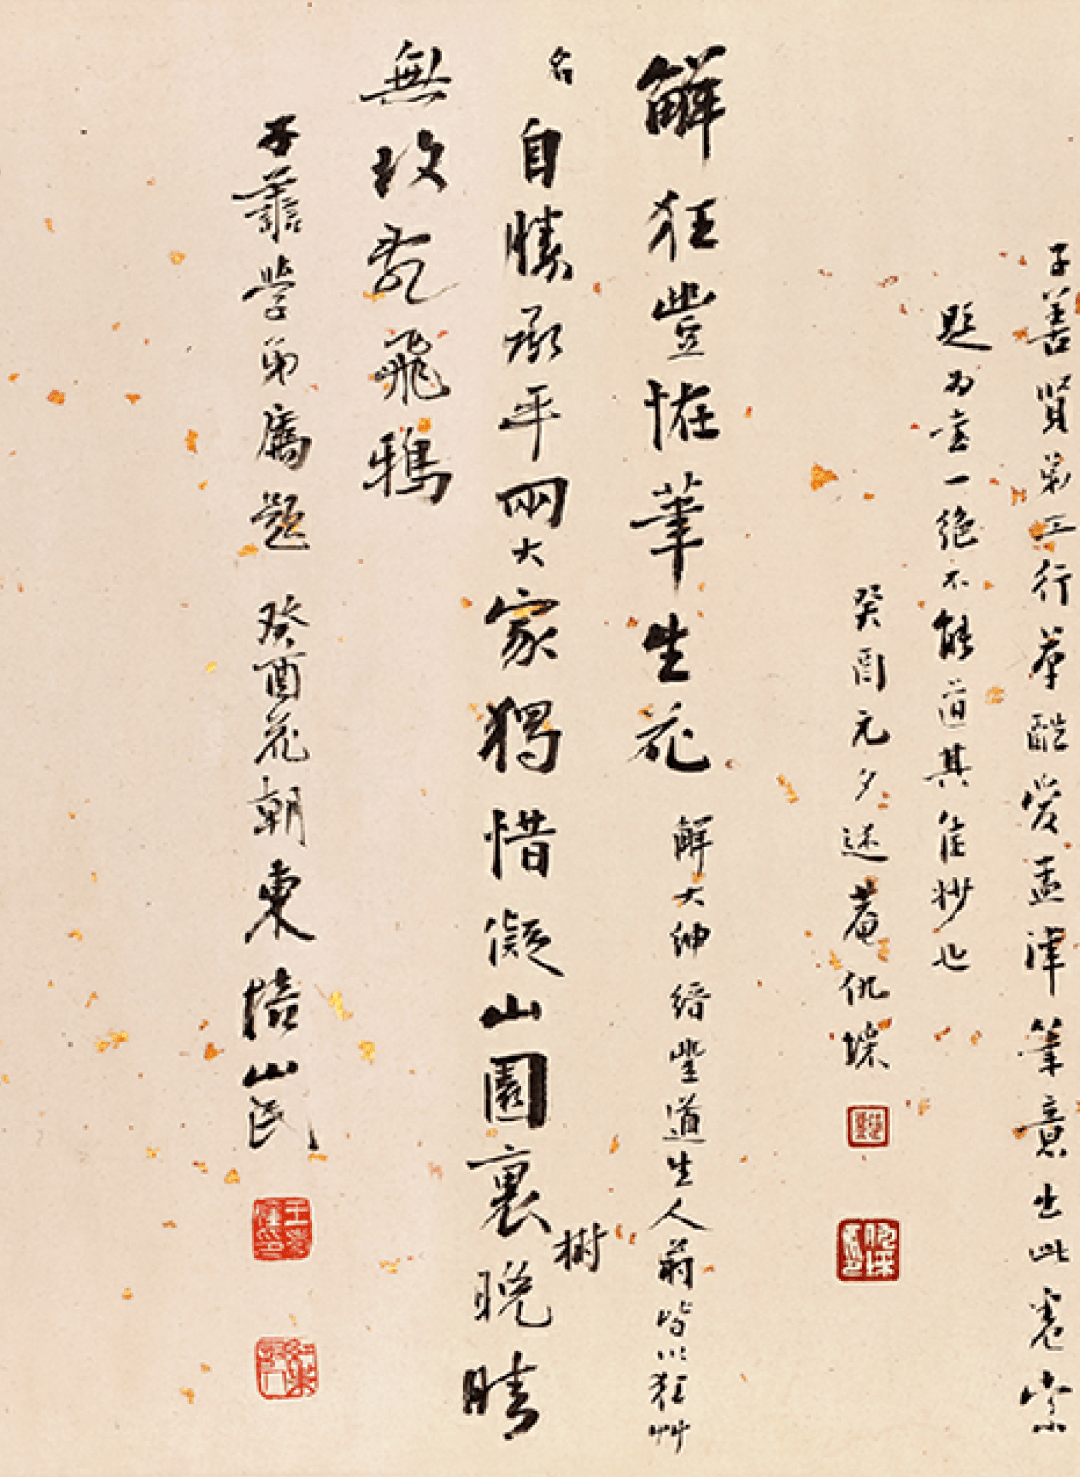 子善賢弟工行草酷愛孟津筆意出此卷索
題為書一絕不能道其佳妙也
癸酉元夕述菴仇埰
解狂豈怪筆生花 解大紳縉 坐道生人蔣皆以狂艸
名 自勝承平兩大家獨惜儗山園裏晚晴
樹
無妨亂飛鴉
子善學弟屬題 癸酉花朝東培山民